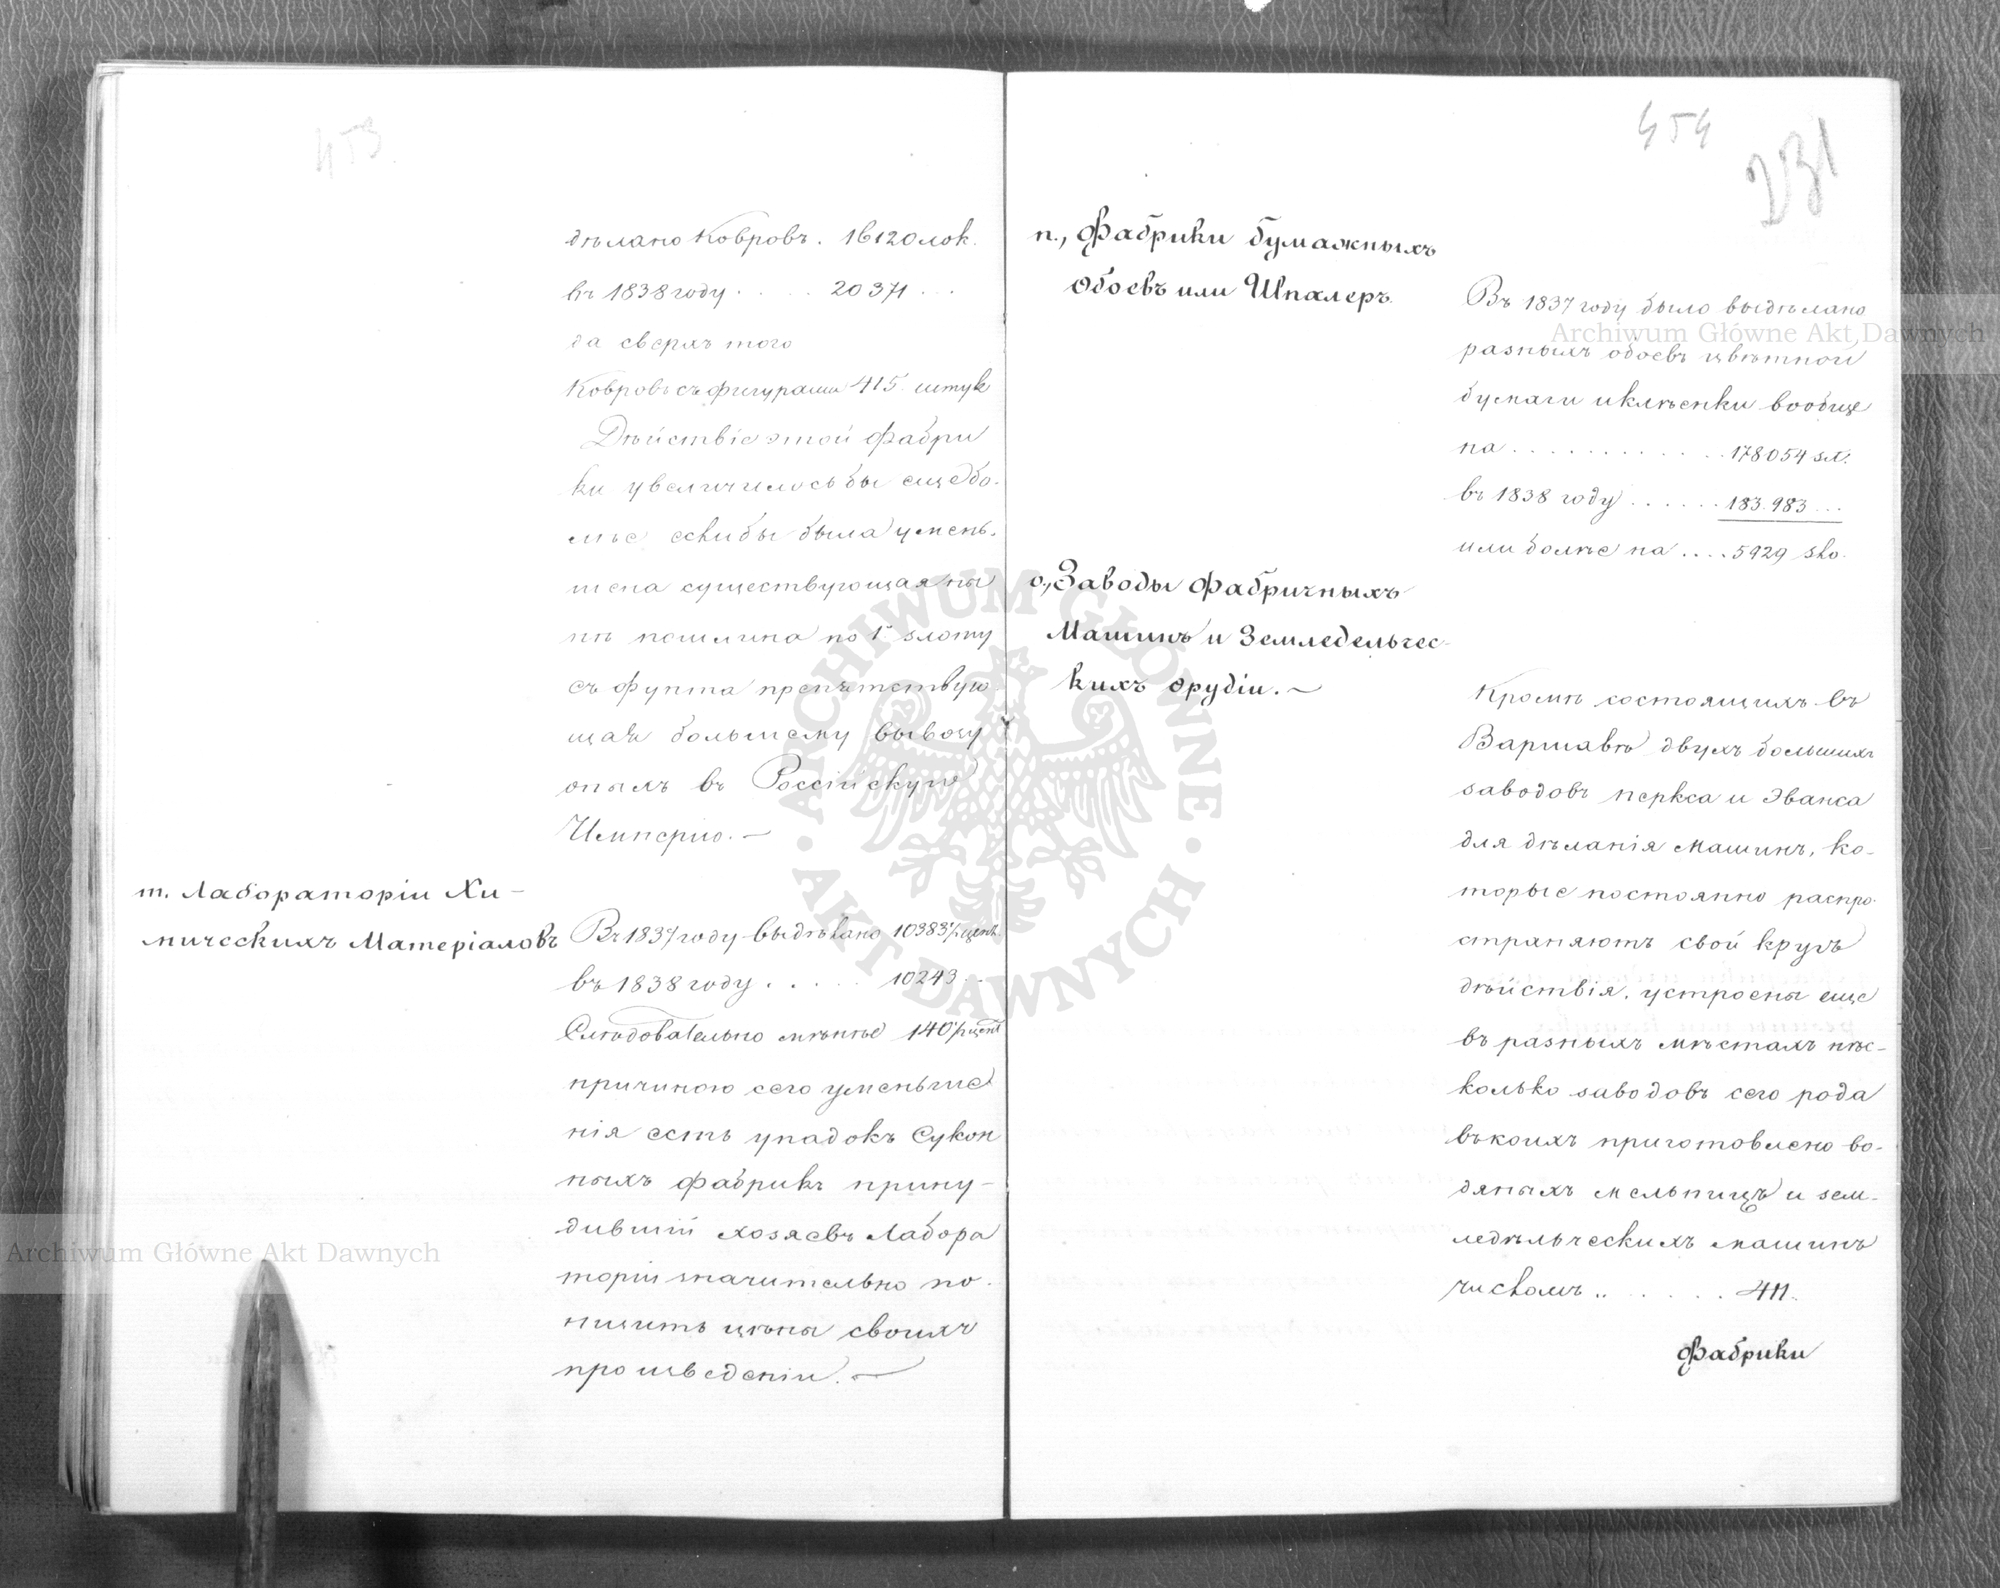 453.
дѣлано Ковровъ. 16120 лок.
въ 1838 году . . . . . 20371 . . .
да сверхъ того
Ковровъ съ фигурами 415. штук
Дѣйствіе этой фабри
ки увеличилось бы еще бо-
лѣе если бы была умень-
шена существующая ны
нѣ пошлина по 1. злоту
съ фунта препятствую
щая большему вывозу
оныхъ въ Россійскую
Имперію. —
m. Лабораторіи Хи-
мическихъ Матеріаловъ
Въ 1837 году выдѣлано 10383½ цент.
въ 1838 году . . . . . 10243 . .
Слѣдовательно менѣе 140½ цент
причиною сего уменьше
нія есть упадокъ Сукон
ныхъ фабрикъ прину-
дившій хозяевъ Лабора
торіи значительно по-
низить цѣны своихъ
произведеніи. —
454
231
n., Фабрики бумажныхъ
Обоевъ или Шпалеръ.
Въ 1837 году было выдѣлано
разныхъ обоевъ цвѣтной
бумаги и клѣенки вообще
на . . . . . . . . . . . . 178054 зл.
въ 1838 году . . . . . . 183.983 . . .
или болѣе на . . . . 5929 зло.
o., Заводы Фабричныхъ
Машинъ и Земледельчес-
кихъ Орудіи. —
Кромѣ состоящихъ въ
Варшавѣ двухъ большихъ
заводовъ Перкса и Эванса
для дѣланія машинъ, ко-
торые постоянно распро-
страняютъ свой кругъ
дѣйствія, устроены еще
въ разныхъ мѣстахъ нѣс-
колько заводовъ сего рода
въ коихъ приготовлено во-
дяныхъ мельницъ и зем-
ледѣльческихъ машинъ
числомъ . . . . . . . 411.
Фабрики
Archiwum Główne Akt Dawnych
Archiwum Główne Akt Dawnych
ARCHIWUM GŁÓWNE · AKT DAWNYCH ·